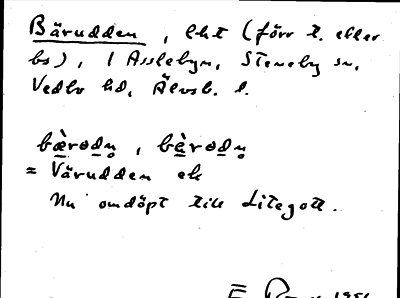 Bärudden, lht (förr t. eller
bs), i Asslebyn, Steneby sn,
Vedbo hd, Älvsb. l.
bæ̀rodn̥, bèrodn̥
= Värudden ek
Nu omdöpt till Litegott.
E. 1951